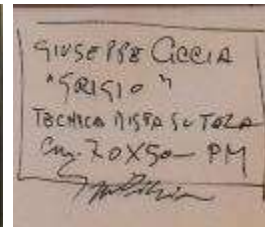 GIUSEPPE CICCIA
"GRIGIO"
TECNICA MISTA SU TELA
Cm 70X50 — PM